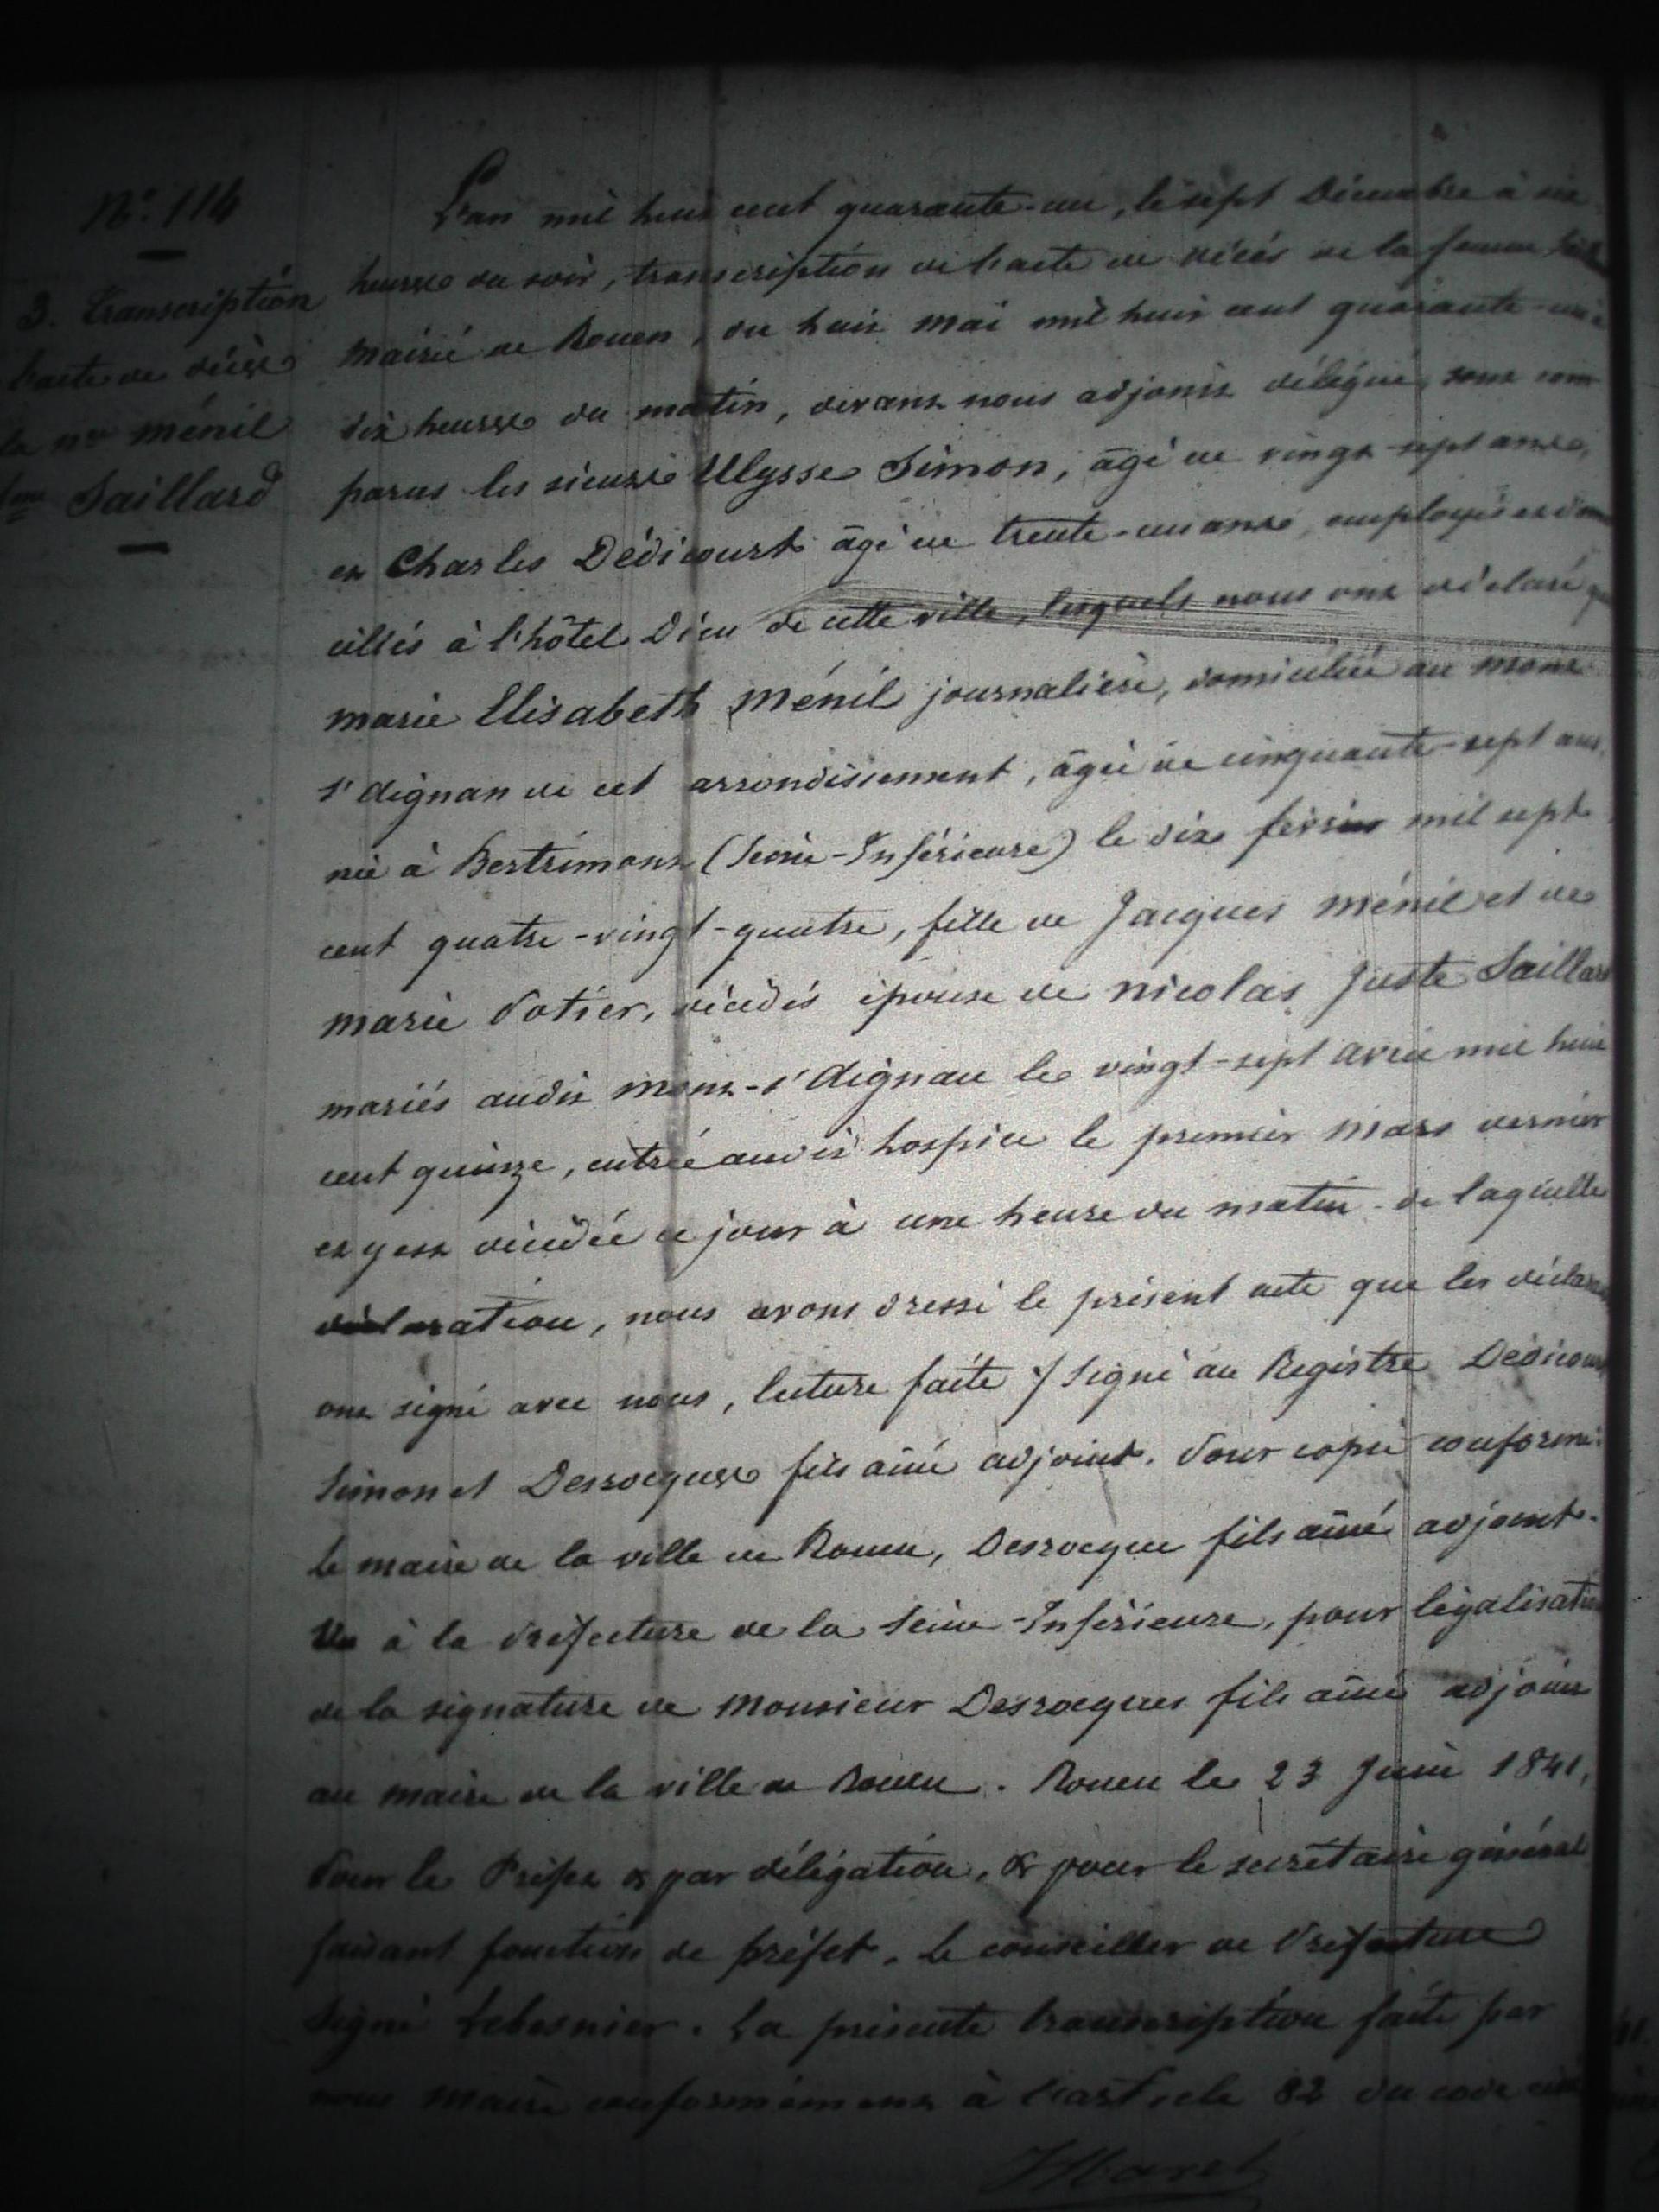 N.° 114
3. Transcription
l'acte de décès
la n.ée Ménil
f.me Saillard
L'an mil huit cent quarante-un, le sept Décembre à six
heures du soir, transcription de l'acte de décès de la femme
Mairie de Rouen, du huit Mai mil huit cent quarante-un
dix heures du matin, devant nous adjoint délégué, sont com
parus les sieurs Ulysse Simon, âgé de vingt-sept ans,
et Charles Dédicourt âgé de trente-un ans, employés et domi
ciliés à l'hôtel Dieu de cette ville, lesquels nous ont déclaré que
marie Elisabeth Ménil journalière, domiciliée au Mont
s.t Aignan de cet arrondissement, âgée de cinquante-sept ans,
née à Bertrimont (Seine-Inférieure) le dix février mil sept
cent quatre-vingt-quatre, fille de Jacques Ménil et de
marie Potier, décédés épouse de nicolas Juste Saillard
mariés audit Mont-s.t Aignan le vingt-sept avril mil huit
cent quinze, entrée audit hospice le premier Mars dernier
et y est décédée ce jour à une heure du matin. de laquelle
déclaration, nous avons dressé le présent acte que les déclarans
ont signé avec nous, lecture faite / Signé au Registre Dédicourt
Simon et Desrocques fils aîné adjoint. Pour copie conforme:
le maire de la ville de Rouen, Desrocque fils aîné adjoint.
Vu à la Préfecture de la Seine-Inférieure, pour légalisation
de la signature de Monsieur Desrocques fils aîné adjoint
au maire de la ville de Rouen. Rouen le 23 Juin 1841,
Pour le Préfet & par délégation, & pour le secrétaire général
faisant fonction de préfet. Le conseiller de Préfecture
signé Lebesnier. La présente transcription faite par
nous Maire conformément à l'article 82 du code civil